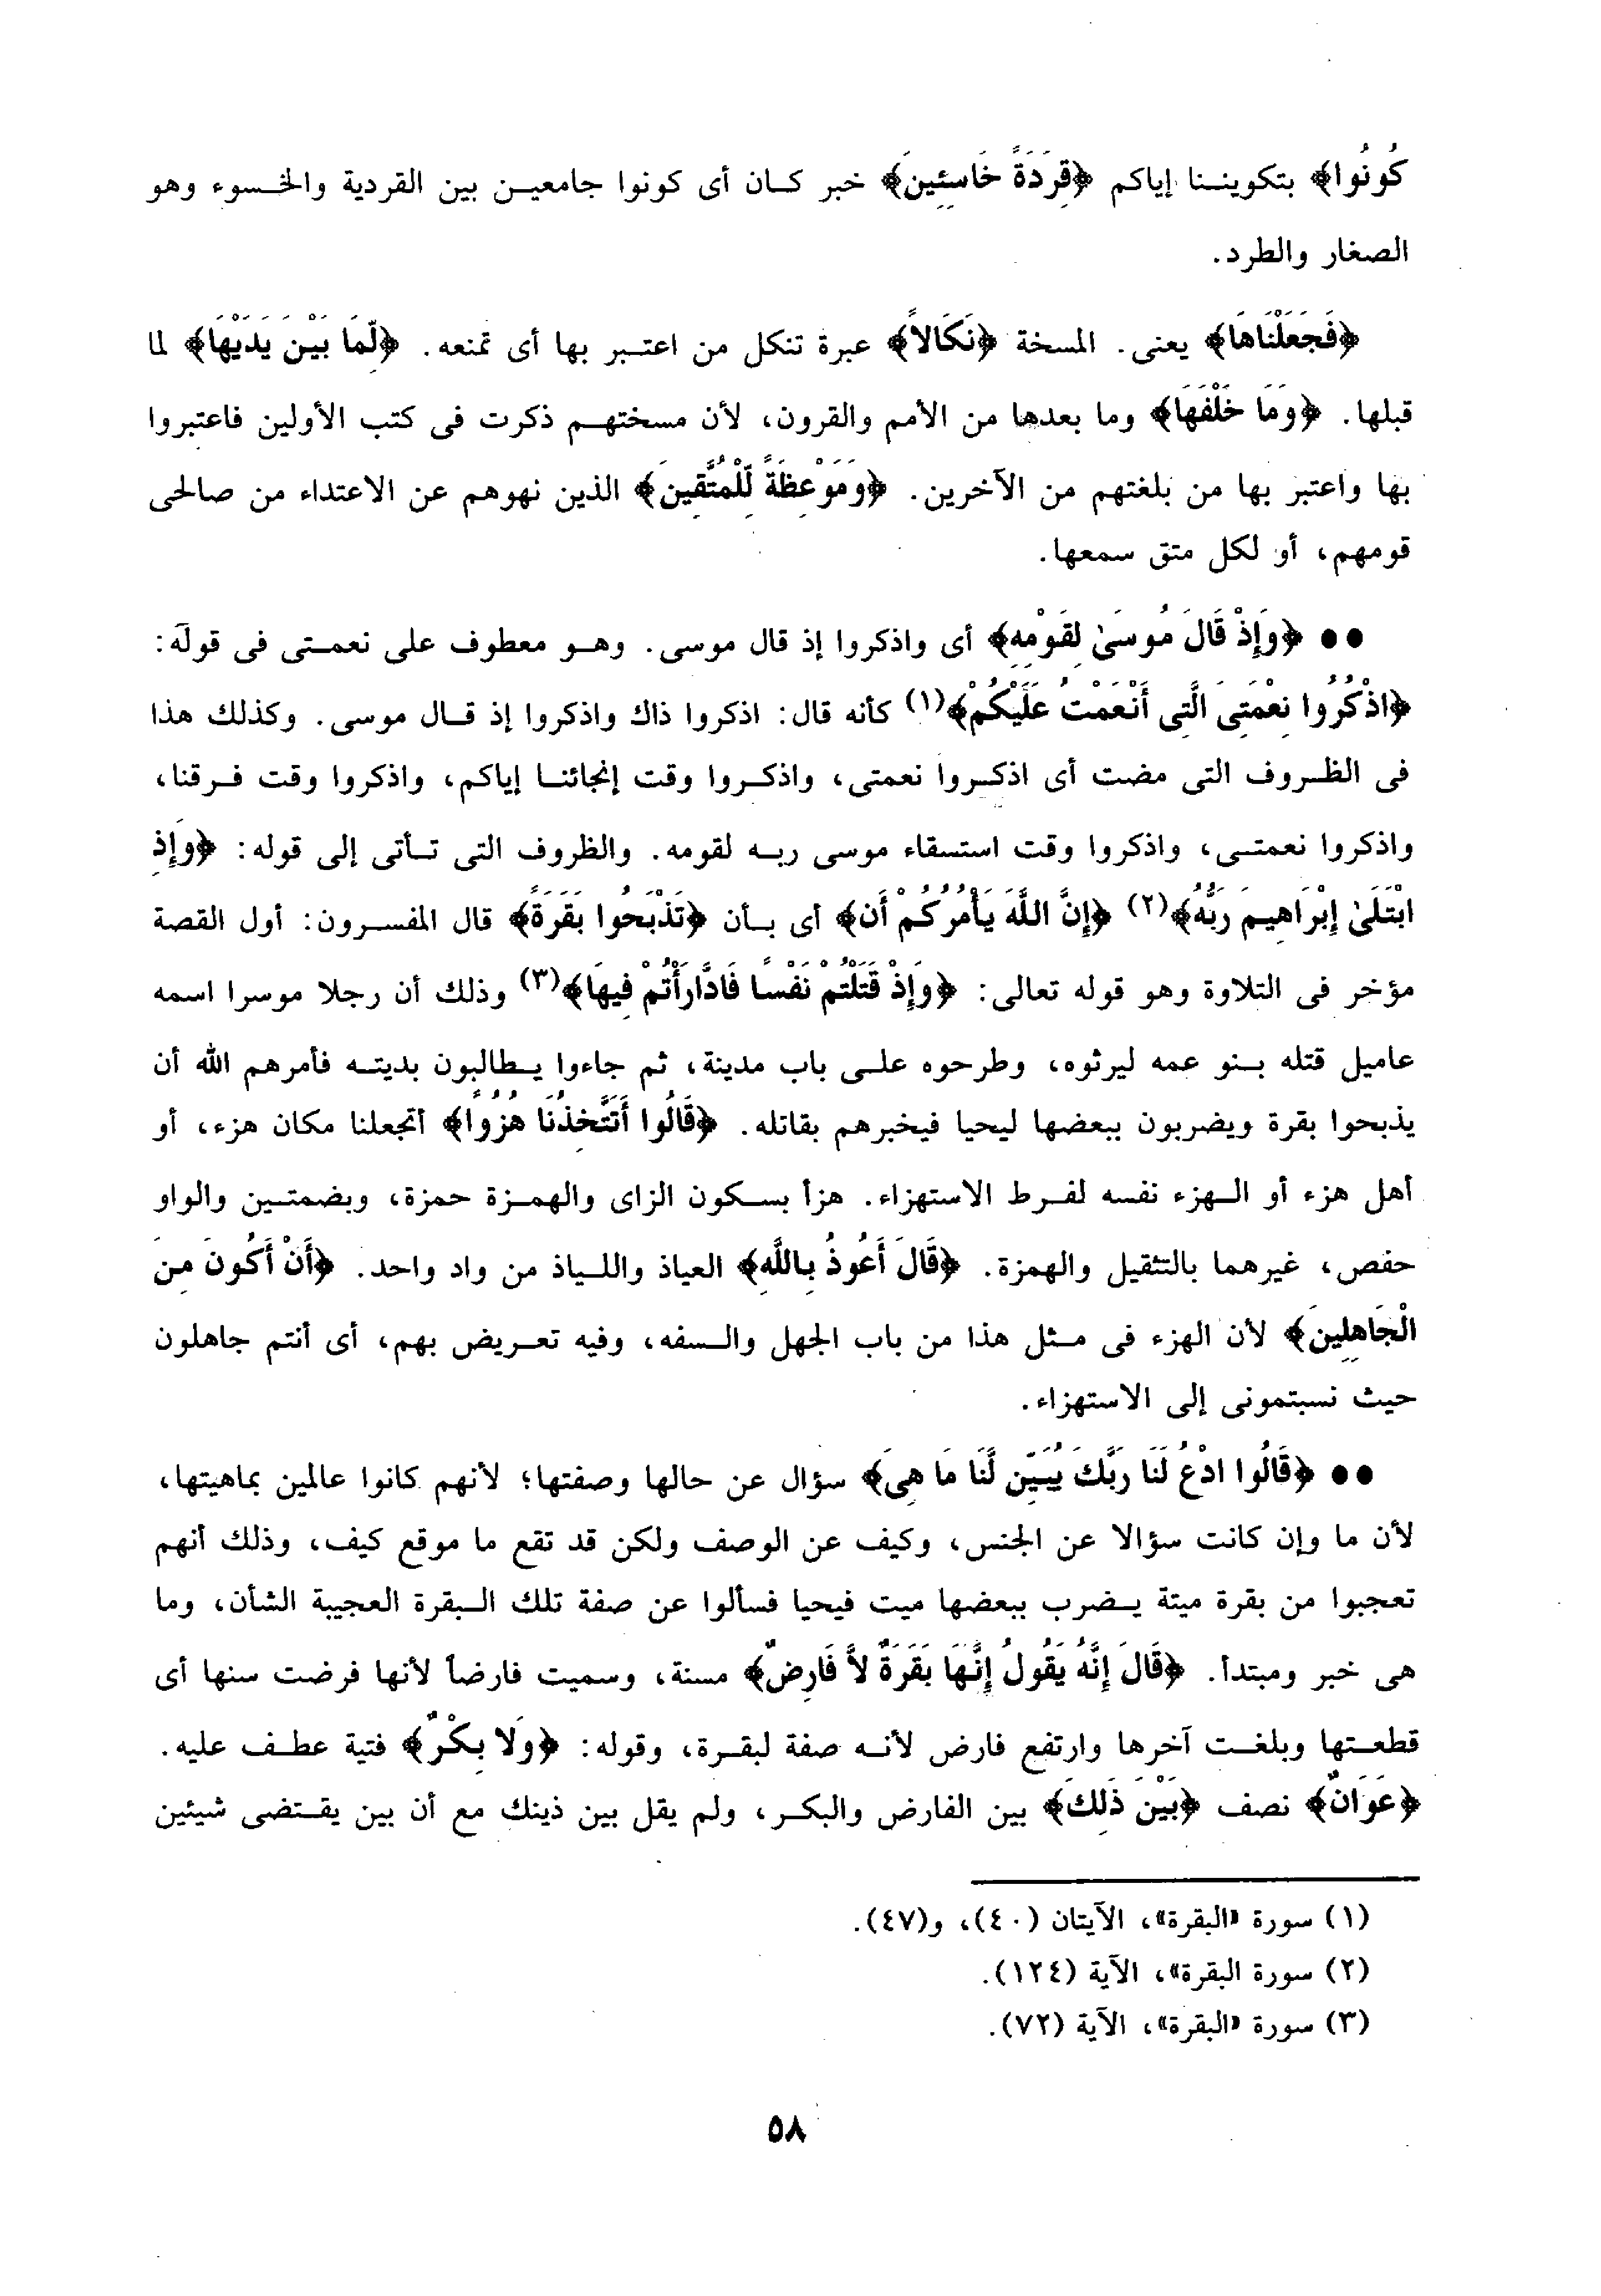 كُونُوا﴾ بتكويننا إياكم ﴿قِرَدَةً خَاسِئِينَ﴾ خبر كان أى كونوا جامعين بين القردية والخسوء وهو
الصغار والطرد.
﴿فَجَعَلْنَاهَا﴾ يعنى. المسخة ﴿نَكَالاً﴾ عبرة تنكل من اعتبر بها أى تمنعه. ﴿لِّمَا بَيْنَ يَدَيْهَا﴾ لما
قبلها. ﴿وَمَا خَلْفَهَا﴾ وما بعدها من الأمم والقرون، لأن مسختهم ذكرت فى كتب الأولين فاعتبروا
بها واعتبر بها من بلغتهم من الآخرين. ﴿وَمَوْعِظَةً لِّلْمُتَّقِينَ﴾ الذين نهوهم عن الاعتداء من صالحى
قومهم، أو لكل متق سمعها.
●● ﴿وَإِذْ قَالَ مُوسَىٰ لِقَوْمِهِ﴾ أى واذكروا إذ قال موسى. وهو معطوف على نعمتى فى قوله:
﴿اذْكُرُوا نِعْمَتِىَ الَّتِى أَنْعَمْتُ عَلَيْكُمْ﴾(١) كأنه قال: اذكروا ذاك واذكروا إذ قال موسى. وكذلك هذا
فى الظروف التى مضت أى اذكروا نعمتى، واذكروا وقت إنجائنا إياكم، واذكروا وقت فرقنا،
واذكروا نعمتى، واذكروا وقت استسقاء موسى ربه لقومه. والظروف التى تأتى إلى قوله: ﴿وَإِذِ
ابْتَلَىٰ إِبْرَاهِيمَ رَبُّهُ﴾(٢) ﴿إِنَّ اللَّهَ يَأْمُرُكُمْ أَن﴾ أى بأن ﴿تَذْبَحُوا بَقَرَةً﴾ قال المفسرون: أول القصة
مؤخر فى التلاوة وهو قوله تعالى: ﴿وَإِذْ قَتَلْتُمْ نَفْسًا فَادَّارَأْتُمْ فِيهَا﴾(٣) وذلك أن رجلا موسرا اسمه
عاميل قتله بنو عمه ليرثوه، وطرحوه على باب مدينة، ثم جاءوا يطالبون بديته فأمرهم الله أن
يذبحوا بقرة ويضربون ببعضها ليحيا فيخبرهم بقاتله. ﴿قَالُوا أَتَتَّخِذُنَا هُزُوًا﴾ أتجعلنا مكان هزء، أو
أهل هزء أو الهزء نفسه لفرط الاستهزاء. هزأ بسكون الزاى والهمزة حمزة، وبضمتين والواو
حفص، غيرهما بالتثقيل والهمزة. ﴿قَالَ أَعُوذُ بِاللَّهِ﴾ العياذ واللياذ من واد واحد. ﴿أَنْ أَكُونَ مِنَ
الْجَاهِلِينَ﴾ لأن الهزء فى مثل هذا من باب الجهل والسفه، وفيه تعريض بهم، أى أنتم جاهلون
حيث نسبتمونى إلى الاستهزاء.
●● ﴿قَالُوا ادْعُ لَنَا رَبَّكَ يُبَيِّن لَّنَا مَا هِىَ﴾ سؤال عن حالها وصفتها؛ لأنهم كانوا عالمين بماهيتها،
لأن ما وإن كانت سؤالا عن الجنس، وكيف عن الوصف ولكن قد تقع ما موقع كيف، وذلك أنهم
تعجبوا من بقرة ميتة يضرب ببعضها ميت فيحيا فسألوا عن صفة تلك البقرة العجيبة الشأن، وما
هى خبر ومبتدأ. ﴿قَالَ إِنَّهُ يَقُولُ إِنَّهَا بَقَرَةٌ لاَّ فَارِضٌ﴾ مسنة، وسميت فارضاً لأنها فرضت سنها أى
قطعتها وبلغت آخرها وارتفع فارض لأنه صفة لبقرة، وقوله: ﴿وَلا بِكْرٌ﴾ فتية عطف عليه.
﴿عَوَانٌ﴾ نصف ﴿بَيْنَ ذَلِكَ﴾ بين الفارض والبكر، ولم يقل بين ذينك مع أن بين يقتضى شيئين
(١) سورة «البقرة»، الآيتان (٤٠)، و(٤٧).
(٢) سورة البقرة»، الآية (١٢٤).
(٣) سورة «البقرة»، الآية (٧٢).
٥٨